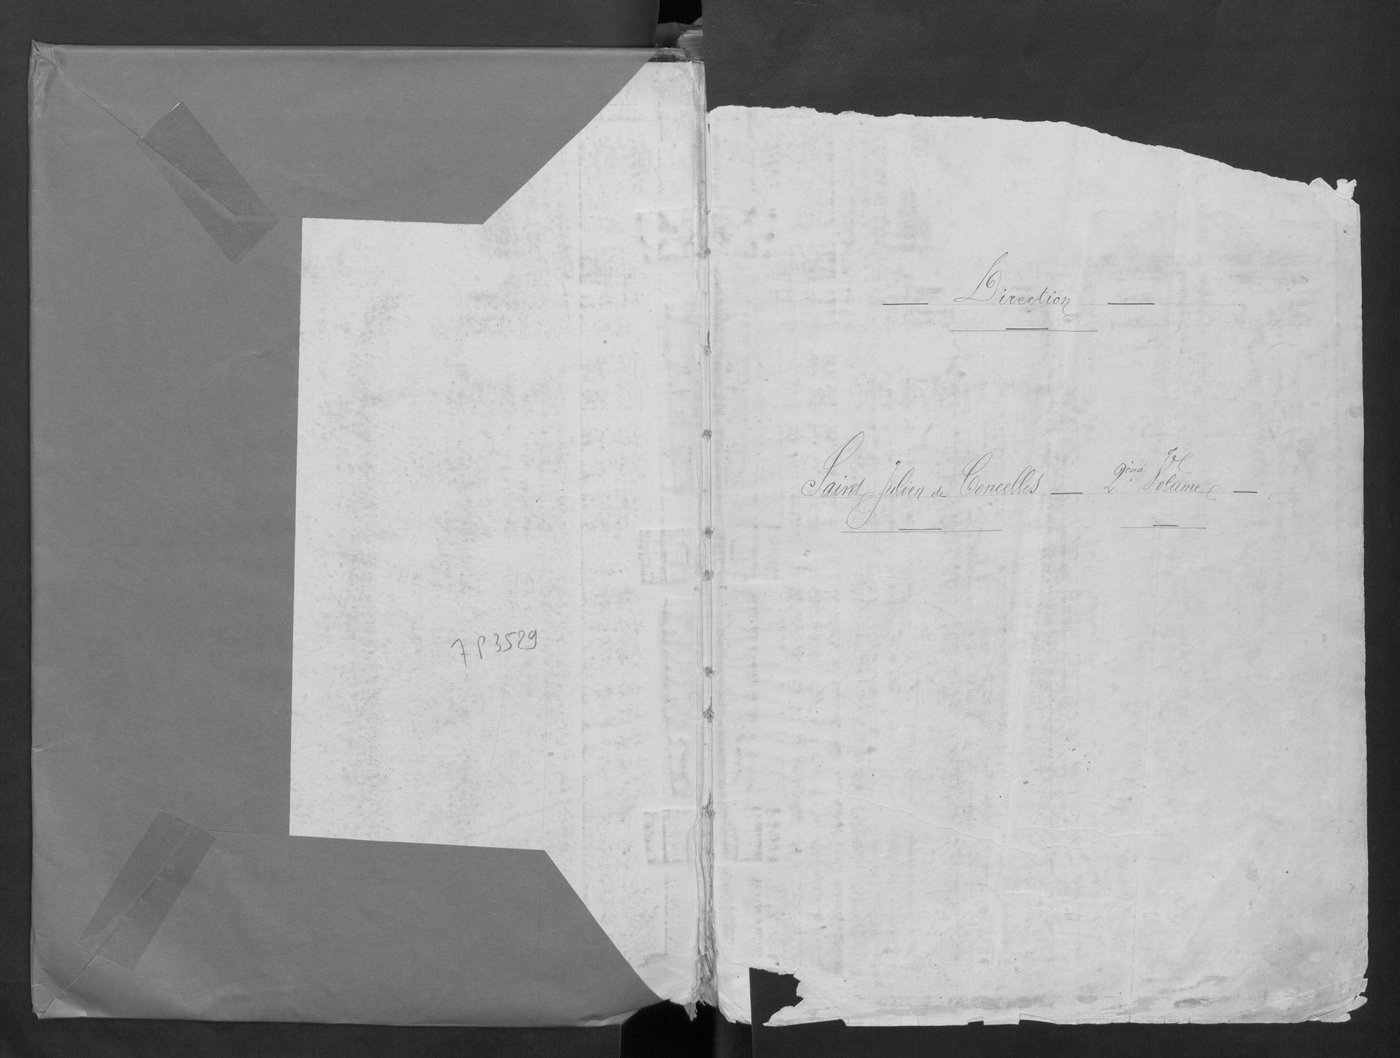 7 P 3529
Direction
Saint Julien de Concelles — 2ème Volume —